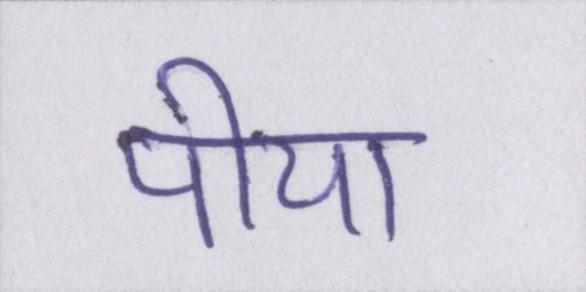 पीया